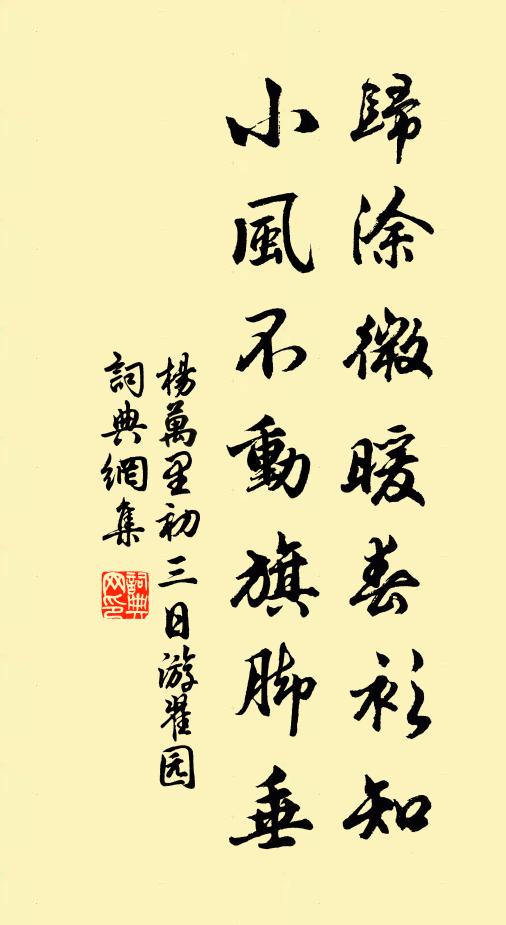 歸塗微暖春衫知
小風不動旗脚垂
楊萬里初三日游瞿园
詞典網集
詞典
网印